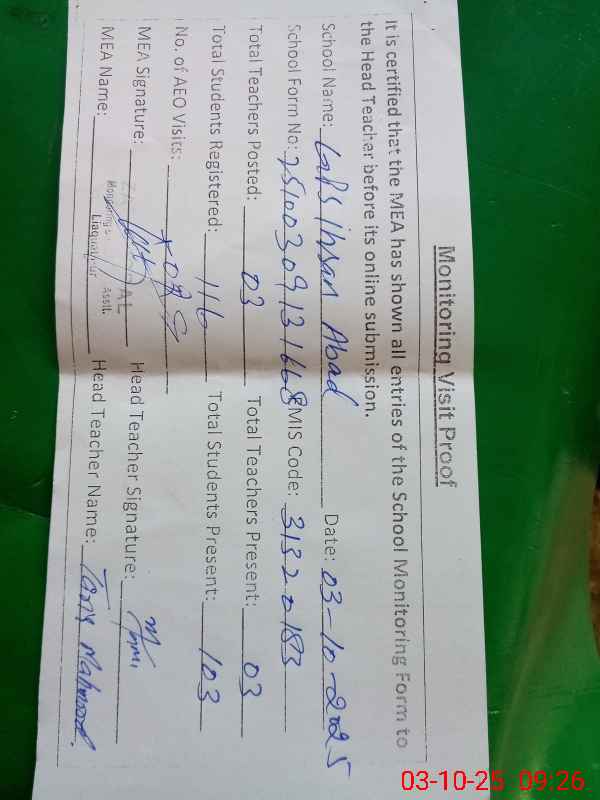 Monitoring Visit Proof
It is certified that the MEA has shown all entries of the School Monitoring Form to
the Head Teacher before its online submission.
School Name: GPS Ihsan Abad Date: 03-10-2025
School Form No: 25100309131668 EMIS Code: 31320183
Total Teachers Posted: 03 Total Teachers Present: 03
Total Students Registered: 116 Total Students Present: 103
No. of AEO Visits:
MEA Signature: Head Teacher Signature:
MEA Name: Head Teacher Name: Tariq Mahmood.
Monitoring Assit.
Liaquatpur
03-10-25 09:26